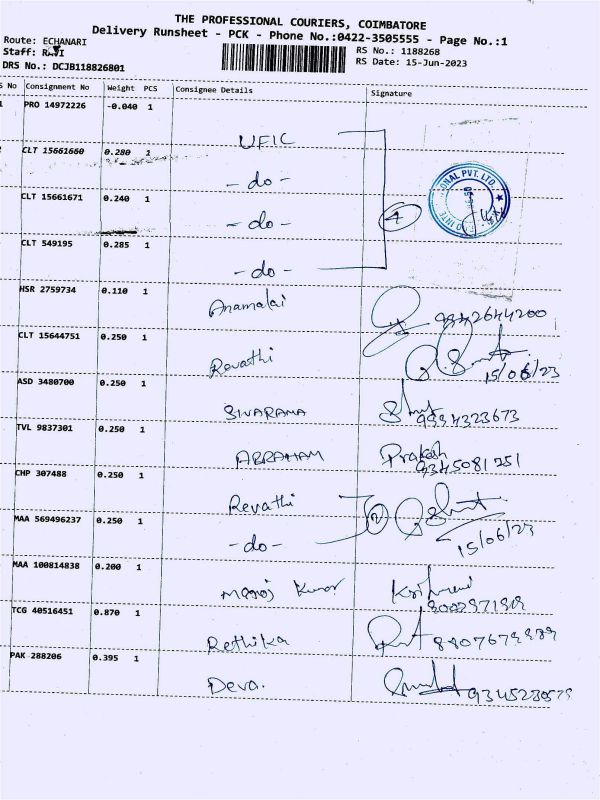 THE PROFESSIONAL COURIERS, COIMBATORE
Delivery Runsheet - PCK - Phone No.:0422-3505555 - Page No.:1
Route: ECHANARI
Staff: RAVI
RS No.: 1188268
DRS No.: DCJB118826801
RS Date: 15-Jun-2023
S No Consignment No Weight PCS Consignee Details Signature
1 PRO 14972226 -0.040 1 UFIC
2 CLT 15661660 0.280 1 -do-
CLT 15661671 0.240 1 -do- 4
CLT 549195 0.285 1 -do-
HSR 2759734 0.110 1 Anamalai 9842644200
CLT 15644751 0.250 1 Revathi 15/06/23
ASD 3480700 0.250 1 SIVARAMA 9994323673
TVL 9837301 0.250 1 ABRAHAM Prakash 9345081251
CHP 307488 0.250 1 Revathi 2
MAA 569496237 0.250 1 -do- 15/06/23
MAA 100814838 0.200 1 Manoj Kumar
TCG 40516451 0.870 1 Rethika
PAK 288206 0.395 1 Deva.